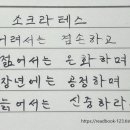 소크라테스
어려서는 겸손하고
젊어서는 온화하며
장년에는 공정하며
늙어서는 신중하라
https://readbook-123.tis